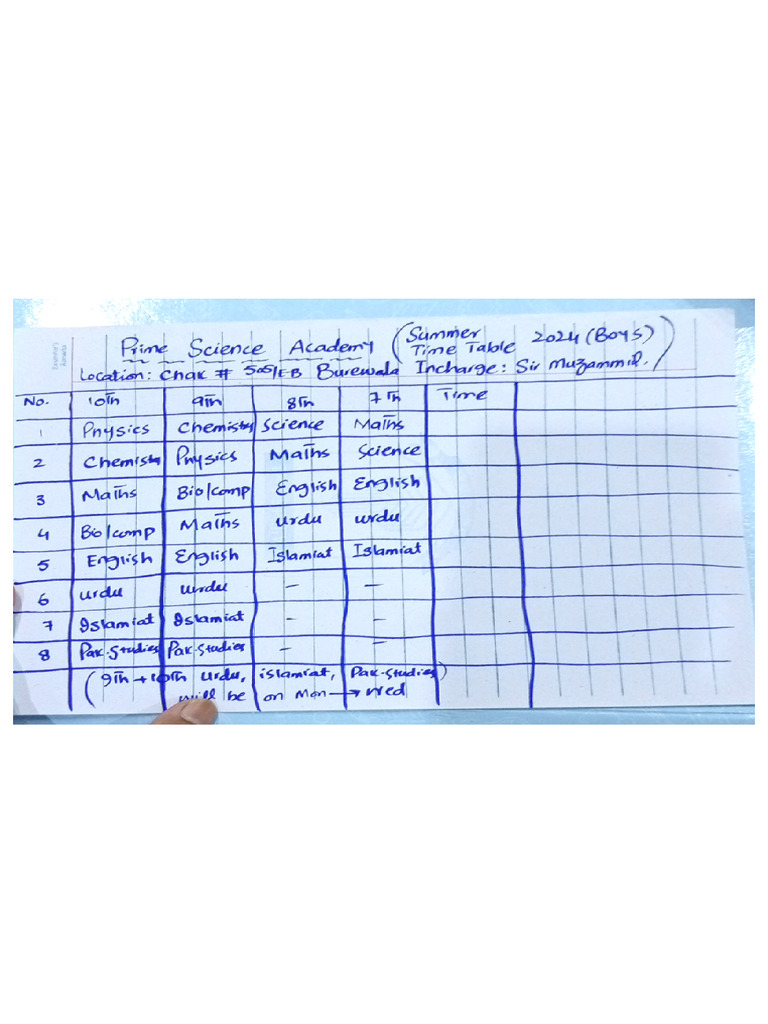 Prime Science Academy (Summer Time Table 2024 (Boys)
Location: Chak # 505/EB Burewala Incharge: Sir Muzammil.)
No. 10Th 9Th 8Th 7Th Time
1 Physics Chemistry Science Maths
2 Chemistry Physics Maths Science
3 Maths Bio/comp English English
4 Bio/comp Maths urdu urdu
5 English English Islamiat Islamiat
6 urdu urdu - -
7 Islamiat Islamiat - -
8 Pak-Studies Pak-Studies - -
(9Th + 10Th Urdu, islamiat, Pak-Studies)
will be on Mon → Wed